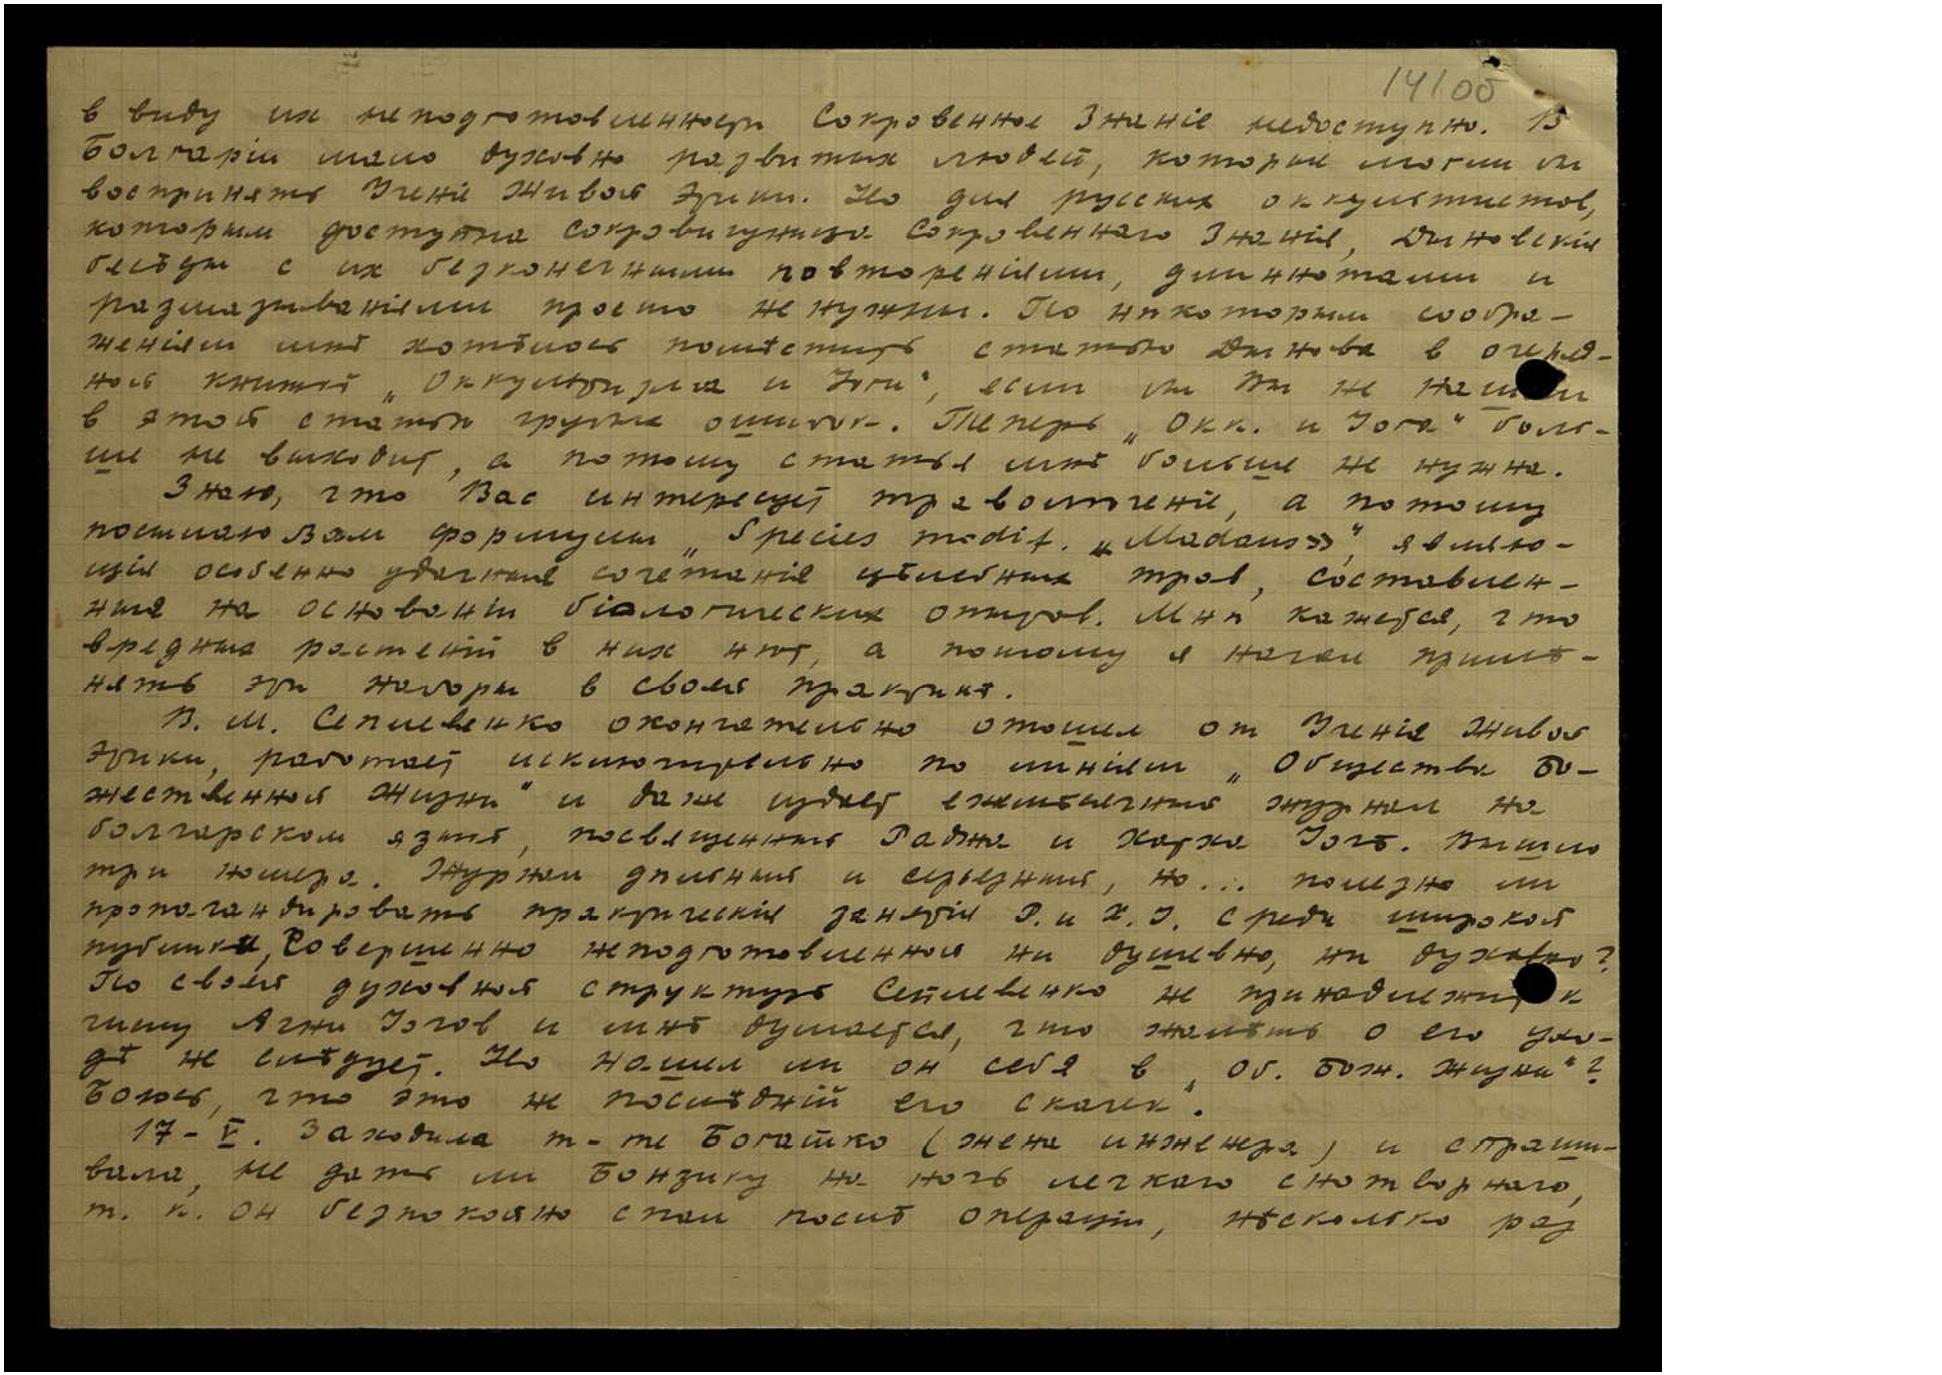 141об
в виду их неподготовленности Сокровенное Знаніе недоступно. В
Болгаріи мало духовно развитых людей, которые могли бы
воспринять Ученіе Живой Этики. Но для русских оккультистов,
которым доступна сокровищница Сокровеннаго Знанія, Дыновскія
бесѣды с их безконечными повтореніями, длиннотами и
размазываніями просто не нужны. По нѣкоторым сообра-
женіям мнѣ хотѣлось помѣстить статью Дынова в очеред-
ной книгѣ „Оккультизма и Йоги", если бы Вы не нашли
в этой статьѣ грубых ошибок. Теперь „Окк. и Йога" боль-
ше не выходит, а потому статья мнѣ больше не нужна.
Знаю, что Вас интересует траволѣченіе, а потому
посылаю Вам формулы „Species medif. „Madaus»", являю-
щія особенно удачныя сочетанія цѣлебных трав, составлен-
ныя на основаніи біологических опытов. Мнѣ кажется, что
вредных растеній в них нѣт, а потому я начал примѣ-
нять эти наборы в своей практикѣ.
В. М. Сеплевенко окончательно отошел от Ученія Живой
Этики, работает исключительно по линіям „Общества Бо-
жественной Жизни" и даже издает ежемѣсячный журнал на
болгарском языкѣ, посвященный Раджа и Хатха Йогѣ. Вышло
три номера. Журнал дѣльный и серьезный, но... полезно ли
пропагандировать практическія занятія Р. и Х. Й. среди широкой
публики, совершенно неподготовленной ни душевно, ни духовно?
По своей духовной структурѣ Сеплевенко не принадлежит к
типу Агни Йогов и мнѣ думается, что жалѣть о его ухо-
дѣ не слѣдует. Но нашел ли он себя в „Об. Бож. Жизни"?
Боюсь, что это не послѣдній его „скачек".
17-V. Заходила m-me Богатко (жена инженера) и спраши-
вала, не дать ли Бонзику на ночь легкаго снотворнаго,
т. к. он безпокойно спал послѣ операціи, нѣсколько раз